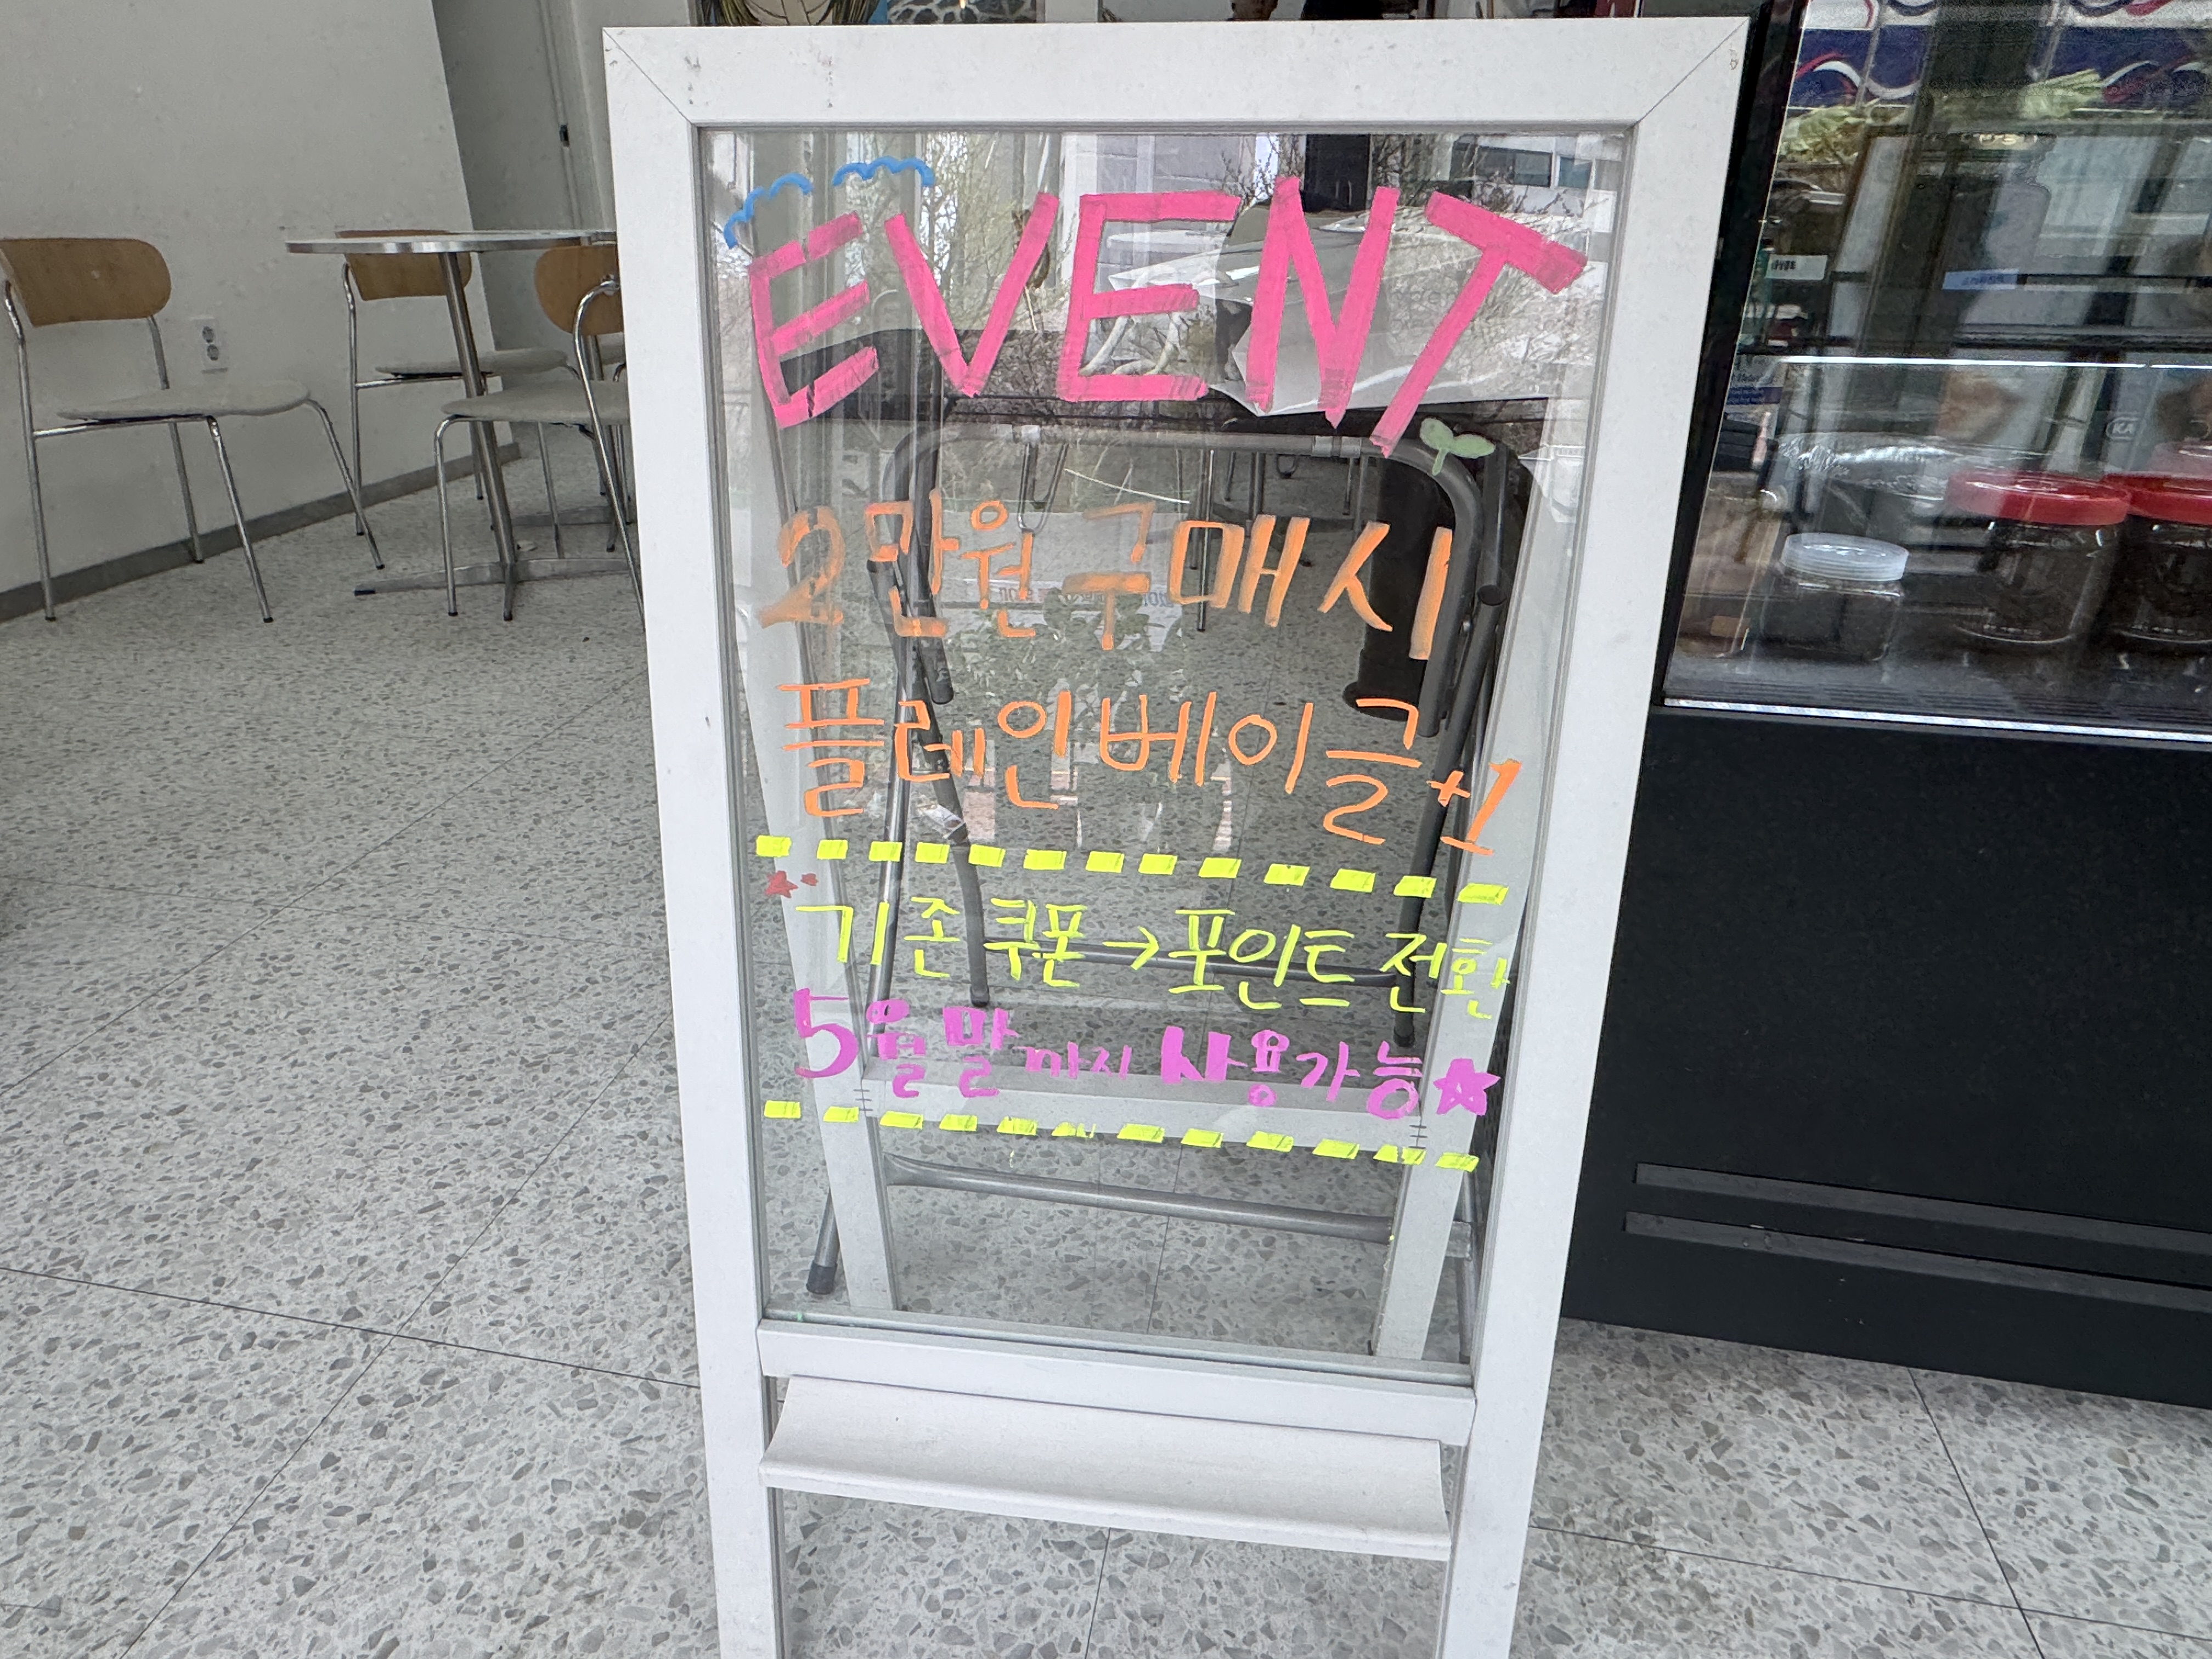 EVENT
2만원 구매시
플레인베이글+1
기존 쿠폰→포인트 전환
5월말까지 사용가능★